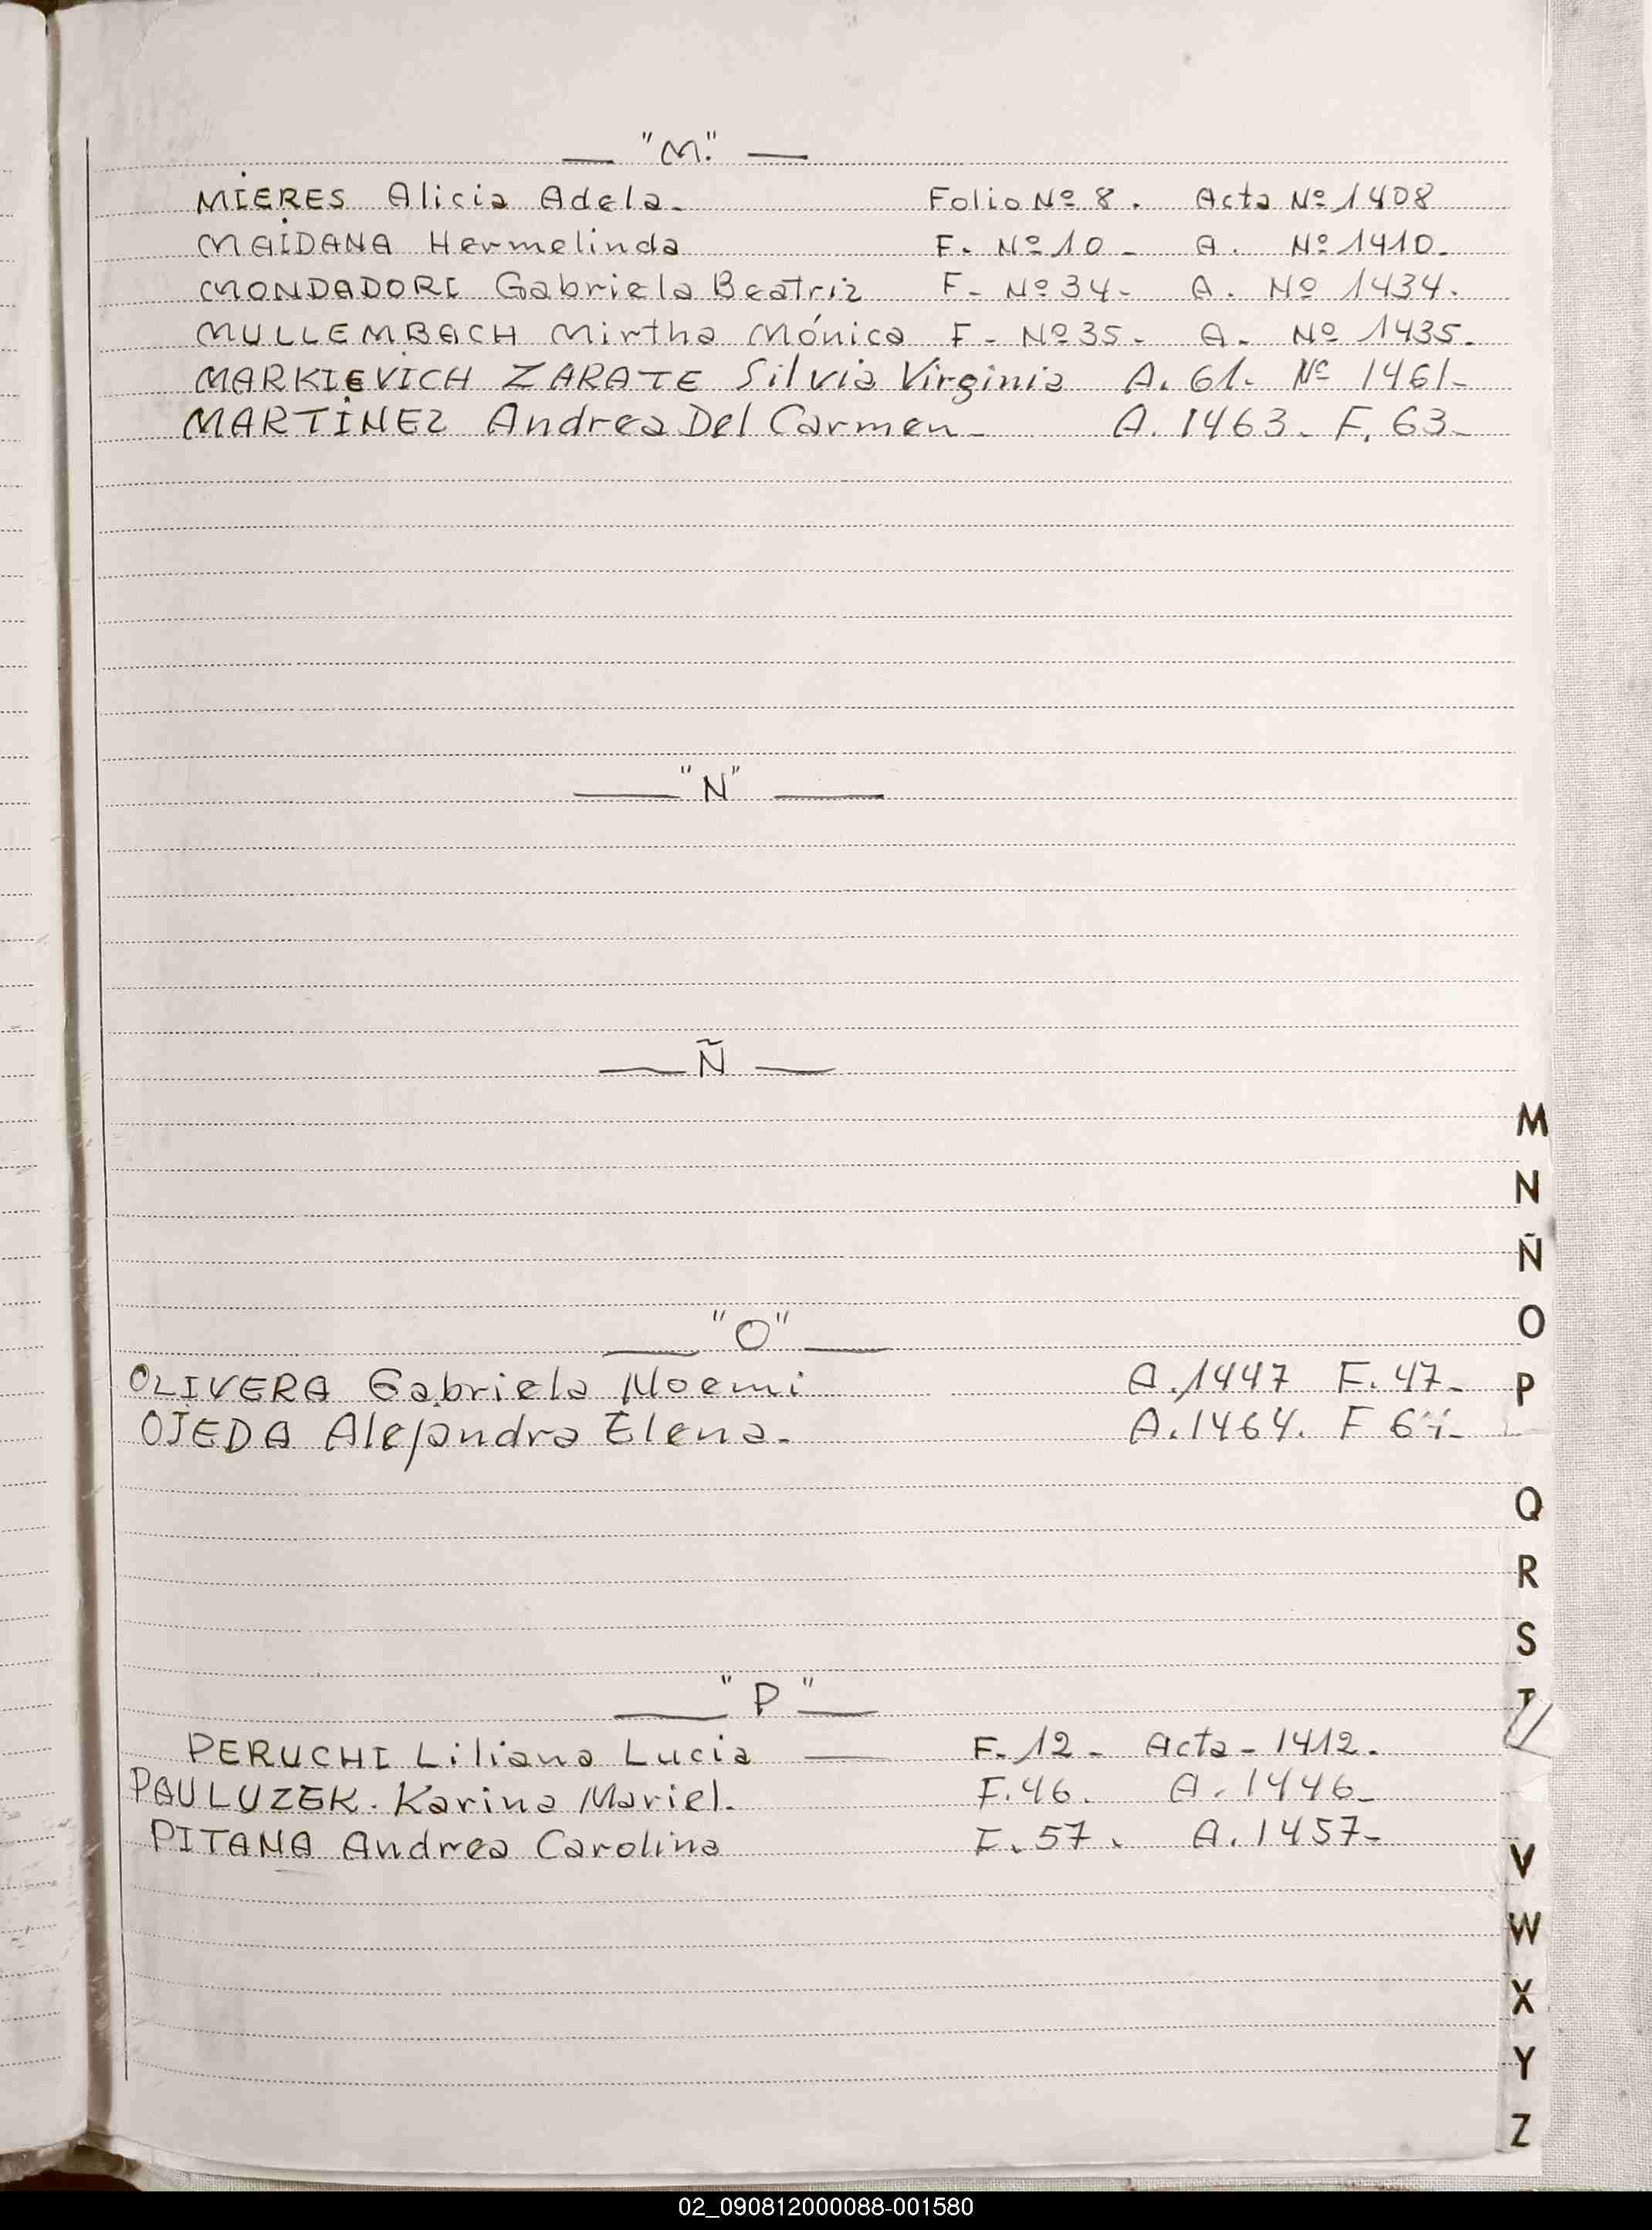 "M."
MIERES Alicia Adela. Folio Nº 8. Acta Nº 1408
MAIDANA Hermelinda F. Nº 10 - A. Nº 1410.
MONDADORI Gabriela Beatriz F- Nº 34- A. Nº 1434.
MULLEMBACH Mirtha Mónica F- Nº 35- A- Nº 1435.
MARKIEVICH ZARATE Silvia Virginia A. 61. Nº 1461-
MARTINEZ Andrea Del Carmen- A. 1463. F. 63-
"N"
Ñ
"O"
OLIVERA Gabriela Noemi A. 1447 F. 47-
OJEDA Alejandra Elena. A. 1464. F 64-
"P"
PERUCHI Liliana Lucia — F. 12 - Acta - 1412.
PAULUZEK. Karina Mariel. F. 46. A. 1446-
PITANA Andrea Carolina F. 57. A. 1457-
M
N
Ñ
O
P
Q
R
S
T
V
W
X
Y
Z
02_090812000088-001580